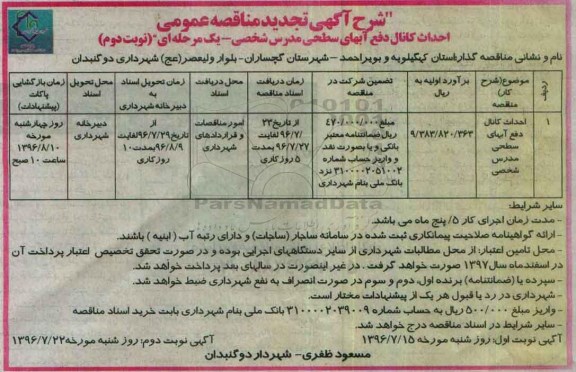 "شرح آگهی تجدید مناقصه عمومی
احداث کانال دفع آبهای سطحی مدرس شخصی – یک مرحله ای" (نوبت دوم)
نام و نشانی مناقصه گذار: استان کهگیلویه و بویراحمد – شهرستان گچساران – بلوار ولیعصر(عج) شهرداری دوگنبدان
ردیف
موضوع(شرح کار) مناقصه
برآورد اولیه به ریال
تضمین شرکت در مناقصه
زمان دریافت اسناد مناقصه
محل دریافت اسناد
زمان تحویل اسناد به دبیرخانه شهرداری
محل تحویل اسناد
زمان بازگشایی پاکات (پیشنهادات)
۱
احداث کانال دفع آبهای سطحی مدرس شخصی
۹/۳۸۳/۸۲۰/۳۶۳
مبلغ ۴۷۰/۰۰۰/۰۰۰ ریال ضمانتنامه معتبر بانکی و یا بصورت نقد و واریز حساب شماره ۳۱۰۰۰۰۲۰۵۱۰۰۲ نزد بانک ملی بنام شهرداری
از تاریخ ۲۳/۹۶/۷ لغایت ۹۶/۷/۲۷ بمدت ۵ روز کاری
امور مناقصات و قراردادهای شهرداری
از تاریخ ۹۶/۷/۲۹ لغایت ۹۶/۸/۹ بمدت ۱۰ روز کاری
دبیرخانه شهرداری
روز چهارشنبه مورخه ۱۳۹۶/۸/۱۰ ساعت ۱۰ صبح
ParsNamadData
سایر شرایط:
- مدت زمان اجرای کار ۵/ پنج ماه می باشد.
- ارائه گواهینامه صلاحیت پیمانکاری ثبت شده در سامانه ساجار (ساجات) و دارای رتبه آب ( ابنیه ) باشند.
- محل تامین اعتبار: از محل مطالبات شهرداری از سایر دستگاههای اجرایی بوده و در صورت تحقق تخصیص اعتبار پرداخت آن
در اسفندماه سال ۱۳۹۷ صورت خواهد گرفت . در غیر اینصورت در سالهای بعد پرداخت خواهد شد.
- سپرده یا (ضمانتنامه) برنده اول، دوم و سوم در صورت انصراف به نفع شهرداری ضبط خواهد شد.
- شهرداری در رد یا قبول هر یک از پیشنهادات مختار است.
- واریز مبلغ ۵۰۰/۰۰۰ ریال به حساب شماره ۳۱۰۰۰۰۲۰۳۹۰۰۹ بانک ملی بنام شهرداری بابت خرید اسناد مناقصه
- سایر شرایط در اسناد مناقصه درج خواهد شد.
آگهی نوبت اول: روز شنبه مورخه ۱۳۹۶/۷/۱۵ آگهی نوبت دوم: روز شنبه مورخه ۱۳۹۶/۷/۲۲
مسعود ظفری – شهردار دوگنبدان